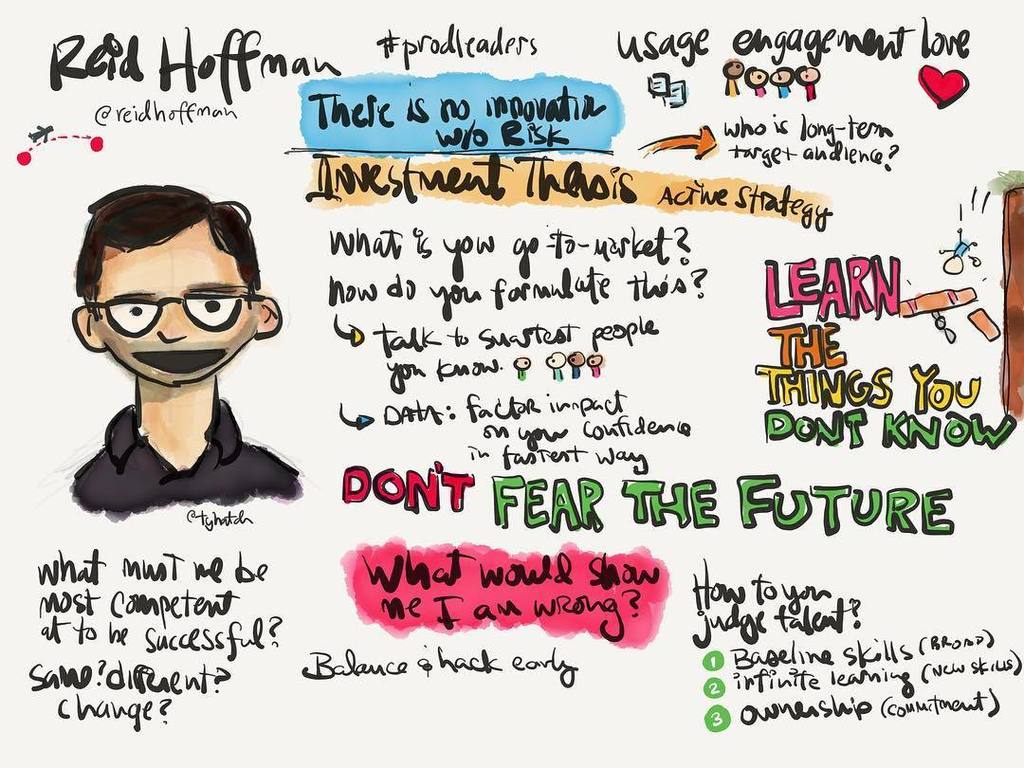 Reid Hoffman
@reidhoffman
#prodleaders
There is no innovation
w/o Risk
Investment Thesis Active Strategy
usage engagement love
who is long-term
target audience?
What is your go-to-market?
how do you formulate this?
talk to smartest people
you know.
DATA: factor impact
on your confidence
in fastest way
LEARN
THE
THINGS YOU
DONT KNOW
DON'T FEAR THE FUTURE
@tyhatch
what must we be
most competent
at to be successful?
same? different?
change?
What would show
me I am wrong?
Balance & hack early
How to you
judge talent?
1 Baseline skills (BROAD)
2 infinite learning (new skills)
3 ownership (commitment)